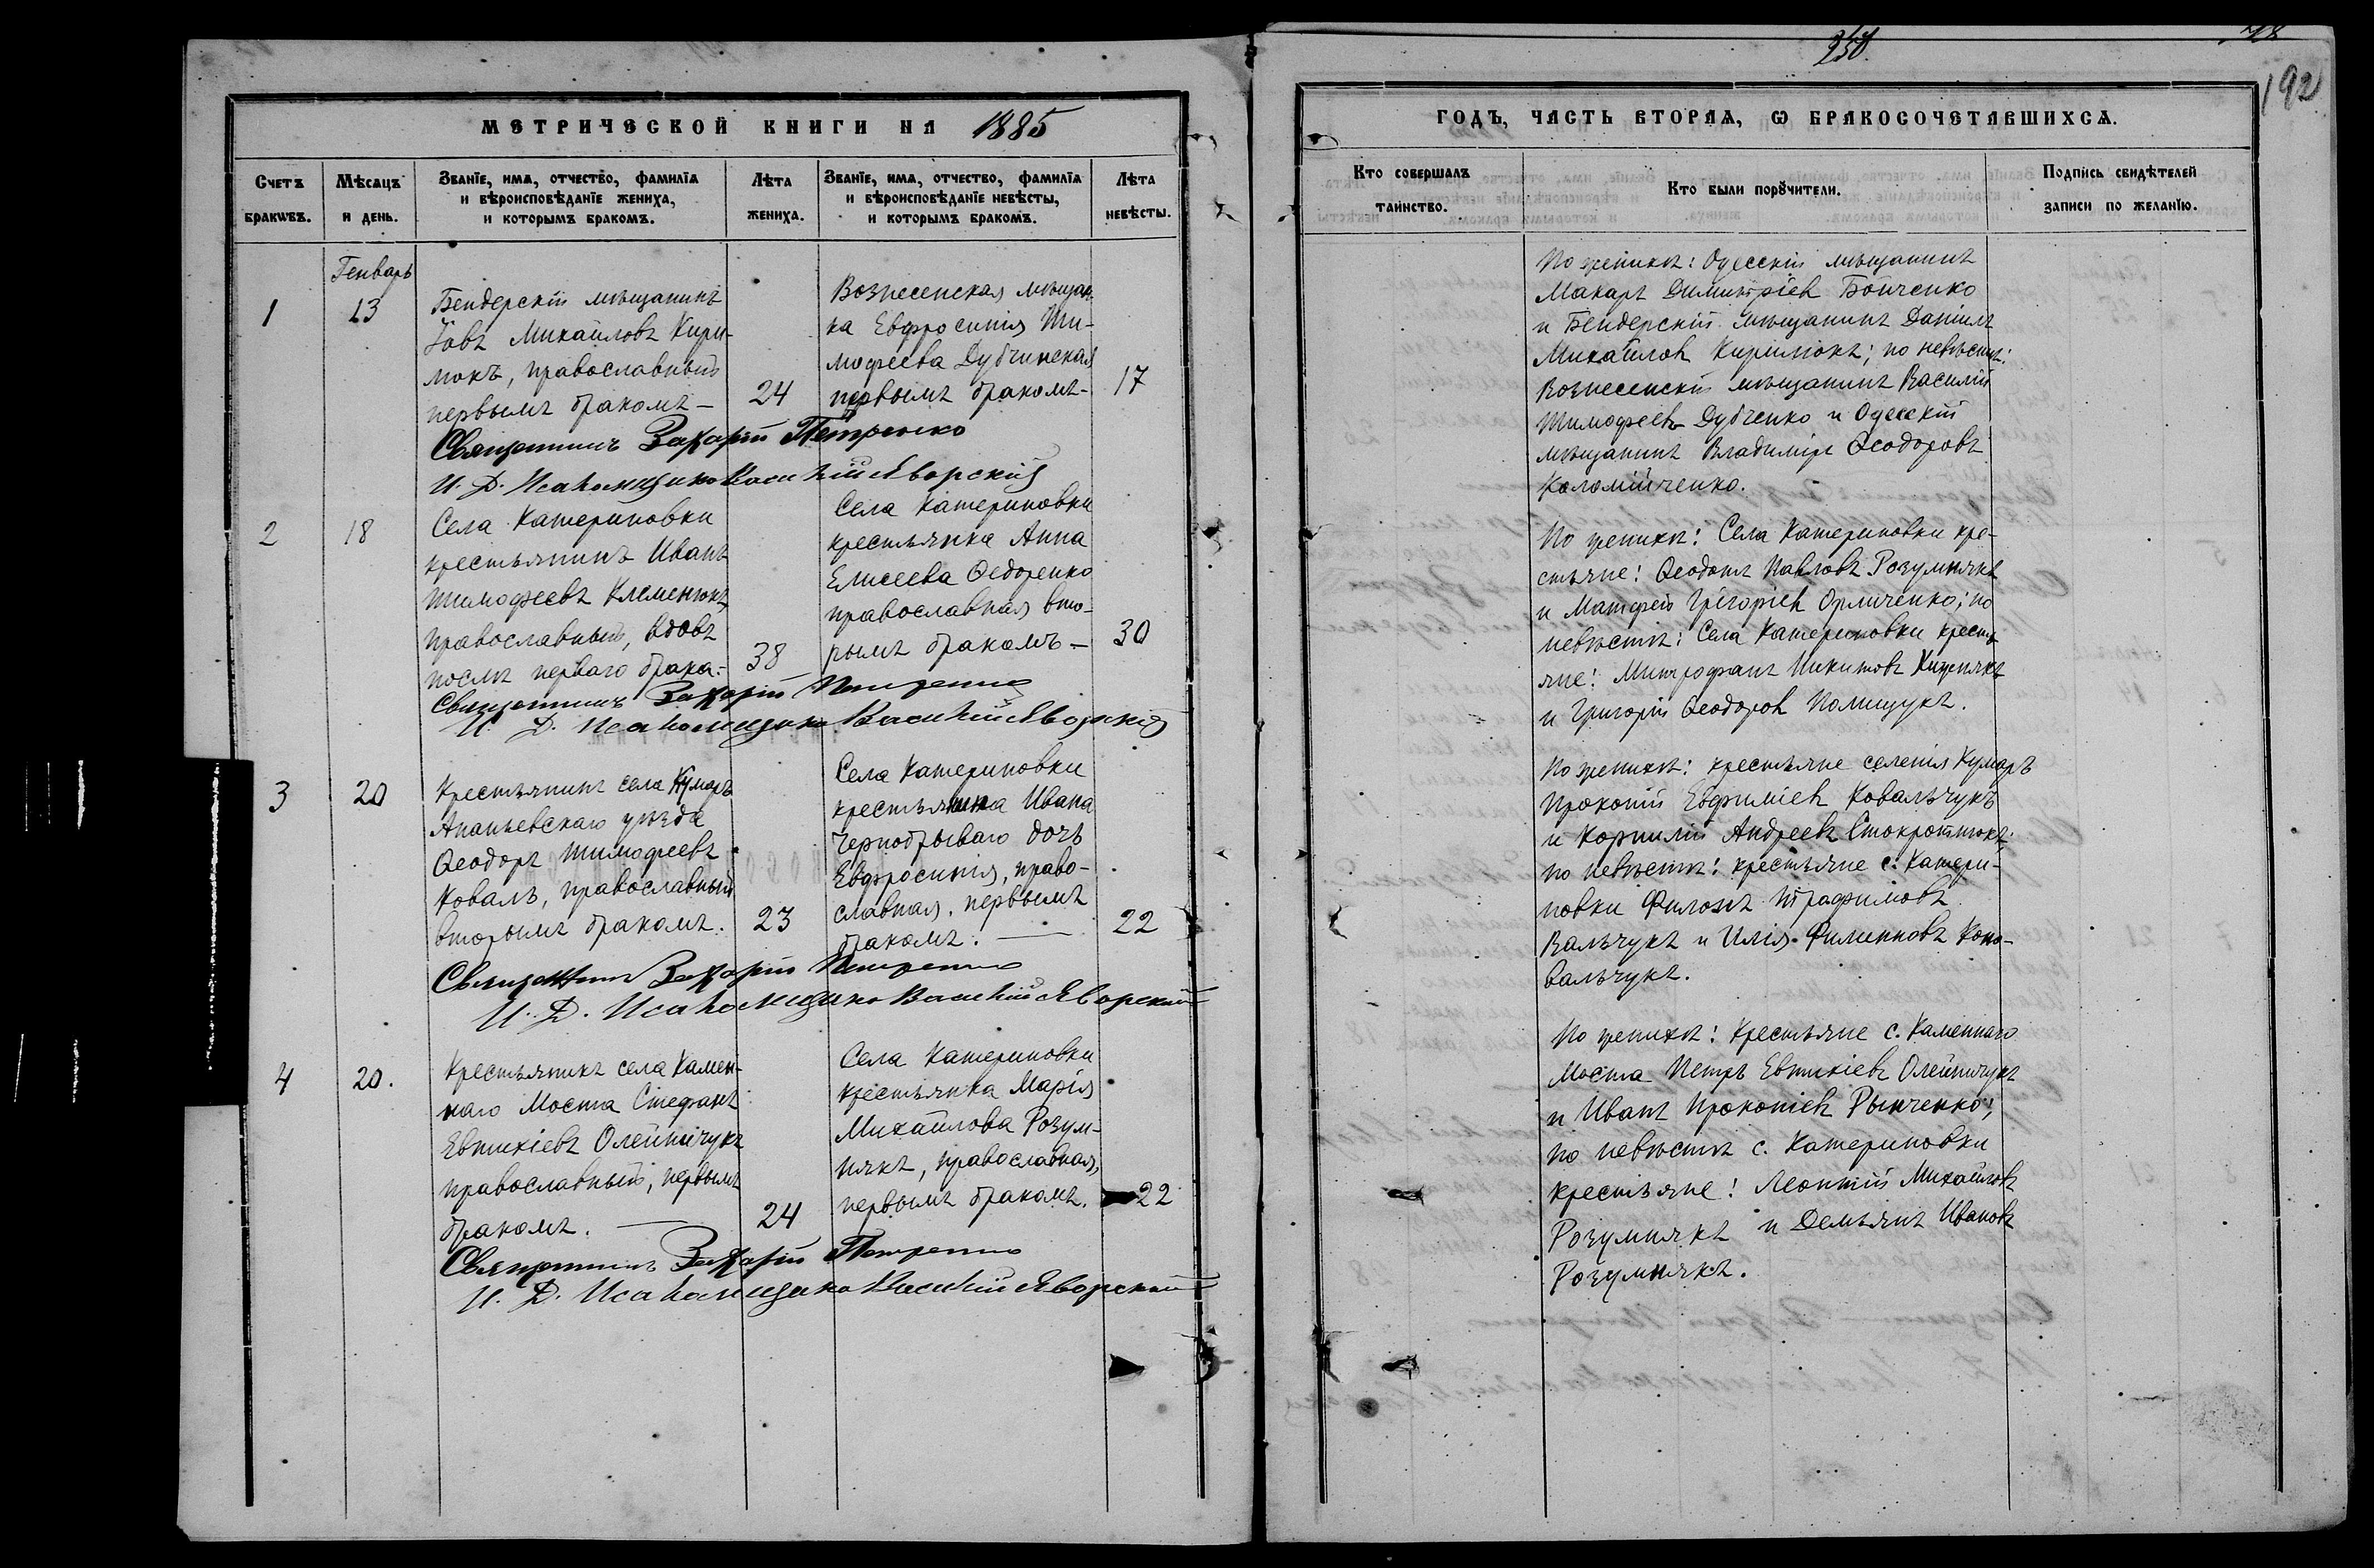 250.
192
МЕТРИЧЕСКОЙ КНИГИ НА 1885
Счетъ браковъ.
Мѣсяцъ и день.
Званіе, имя, отчество, фамилія и вѣроисповѣданіе жениха, и которымъ бракомъ.
Лѣта жениха.
Званіе, имя, отчество, фамилія и вѣроисповѣданіе невѣсты, и которымъ бракомъ.
Лѣта невѣсты.
Генварь
1
13
Бендерскій мѣщанинъ
Іовъ Михайловъ Кири-
мокъ, православный
первымъ бракомъ —
24
Вознесенская мѣщан-
ка Евфросинія Ти-
мофеева Дубчинская
первымъ бракомъ —
17
Священникъ Захарій Петренко
И. Д. Псаломщика Василій Яворскій
2
18
Села Катериновки
крестьянинъ Иванъ
Тимофеевъ Клеменюкъ
православный, вдовъ
послѣ перваго брака. —
38
Села Катериновки
крестьянка Анна
Елисеева Ѳедоренко
православная вто-
рымъ бракомъ —
30
Священникъ Захарій Петренко
И. Д. Псаломщика Василій Яворскій
3
20
Крестьянинъ села Кумаръ
Ананьевскаго уѣзда
Ѳеодоръ Тимофеевъ
Коваль, православный
вторымъ бракомъ.
23
Села Катериновки
крестьянина Ивана
Чернобрываго дочь
Евфросинія, право-
славная, первымъ
бракомъ. —
22
Священникъ Захарій Петренко
И. Д. Псаломщика Василій Яворскій
4
20.
Крестьянинъ села Камен-
наго Моста Стефанъ
Евтихіевъ Олейничукъ
православный, первымъ
бракомъ. —
24
Села Катериновки
крестьянка Марія
Михайлова Розум-
някъ, православная,
первымъ бракомъ.
22
Священникъ Захарій Петренко
И. Д. Псаломщика Василій Яворскій
ГОДЪ, ЧАСТЬ ВТОРАЯ, Ѡ БРАКОСОЧЕТАВШИХСЯ.
Кто совершалъ таинство.
Кто были поручители.
Подпись свидѣтелей записи по желанію.
По женихѣ: Одесскій мѣщанинъ
Макаръ Димитріевъ Бойченко
и Бендерскій мѣщанинъ Даніилъ
Михайловъ Киримокъ; по невѣстѣ:
Вознесенскій мѣщанинъ Василій
Тимофеевъ Дубченко и Одесскій
мѣщанинъ Владиміръ Ѳеодоровъ
Коломійченко.
По женихѣ: Села Катериновки кре-
стьяне: Ѳеодотъ Павловъ Розумнякъ
и Матфей Григоріевъ Орличенко; по
невѣстѣ: Села Катериновки кресть-
яне: Митрофанъ Никитовъ
и Григорій Ѳеодоровъ Полищукъ.
По женихѣ: крестьяне селенія Кумаръ
Прокопій Евфиміевъ Ковальчукъ
и Корнилій Андреевъ
по невѣстѣ: крестьяне с. Катери-
новки Филонъ Трофимовъ
Вальчукъ и Илія Филипповъ Коно-
вальчукъ.
По женихѣ: Крестьяне с. Каменнаго
Моста Петръ Евтихіевъ Олейничукъ
и Иванъ Прокопіевъ Рынченко;
по невѣстѣ с. Катериновки
крестьяне: Леонтій Михайловъ
Розумнякъ и Демьянъ Ивановъ
Розумнякъ.